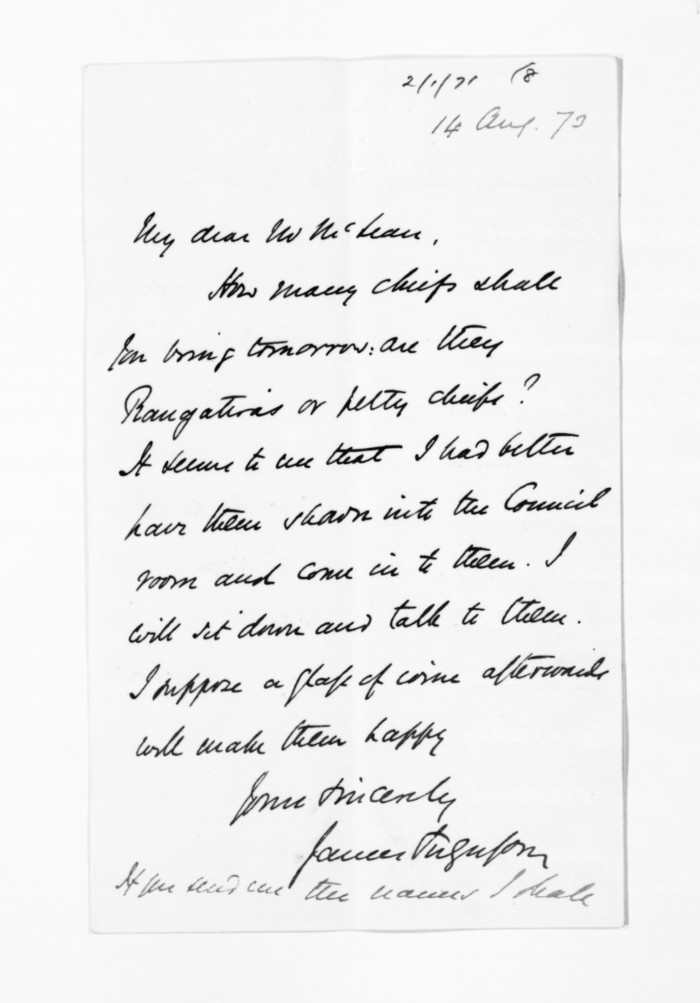 14 Aug. 73
My dear Mr McLean,
How many chiefs shall
you bring tomorrow: are they
Rangatiras or petty chiefs?
It seems to me that I had better
have them shown into the Council
room and come in to them. I
will sit down and talk to them.
I suppose a glass of wine afterwards
will make them happy
Yours sincerely
James Fergusson
If you send me the names I shall